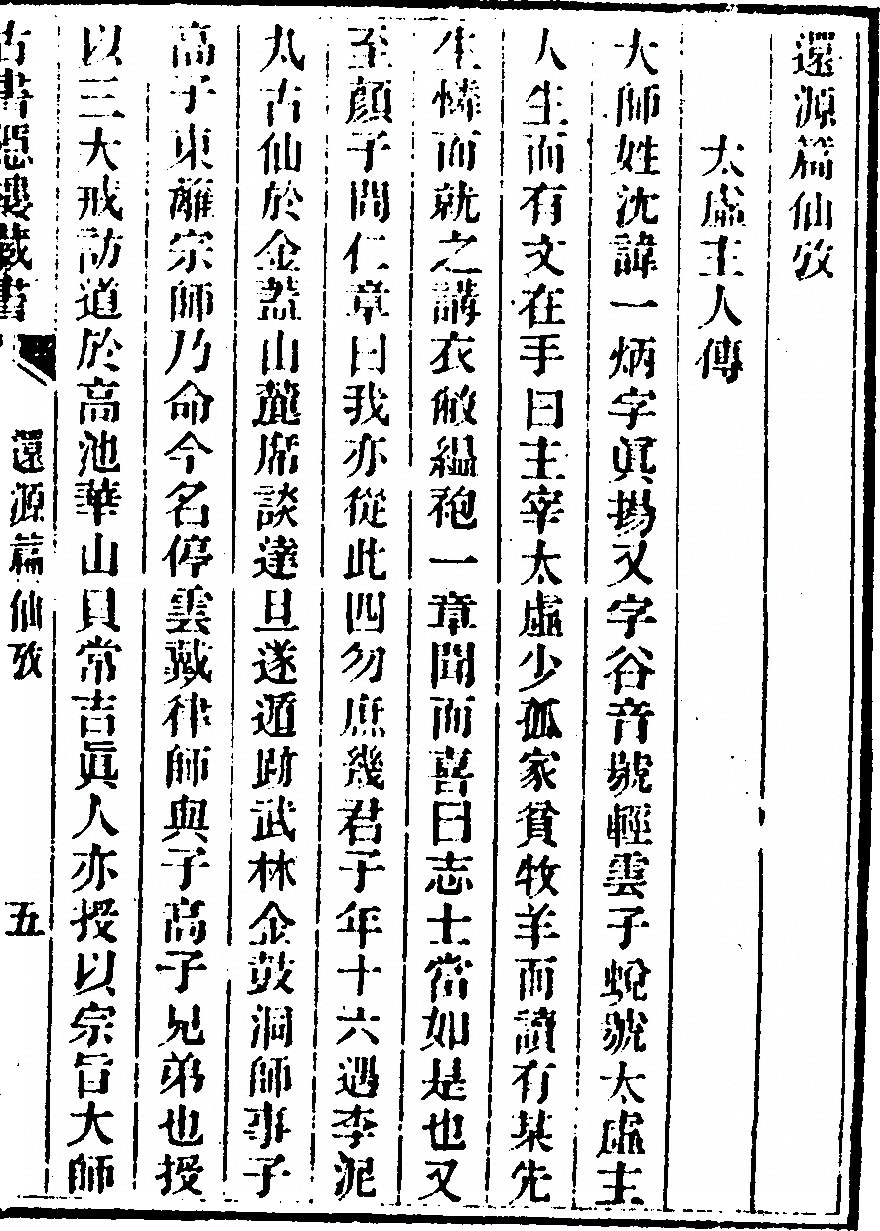 還源篇仙攷
太虛主人傳
大師姓沈諱一炳字眞揚又字谷音號輕雲子蛻號太虛主
人生而有文在手曰主宰太虛少孤家貧牧羊而讀有某先
生憐而就之講衣敝縕袍一章聞而喜曰志士當如是也又
至顏子問仁章曰我亦從此四勿庶幾君子年十六遇李泥
丸古仙於金蓋山麓席談達旦遂遁跡武林金鼓洞師事子
高子東蘺宗師乃命今名停雲戴律師與子高子兄弟也授
以三大戒訪道於高池華山貝常吉眞人亦授以宗旨大師
古書隱樓藏書
還源篇仙攷
五